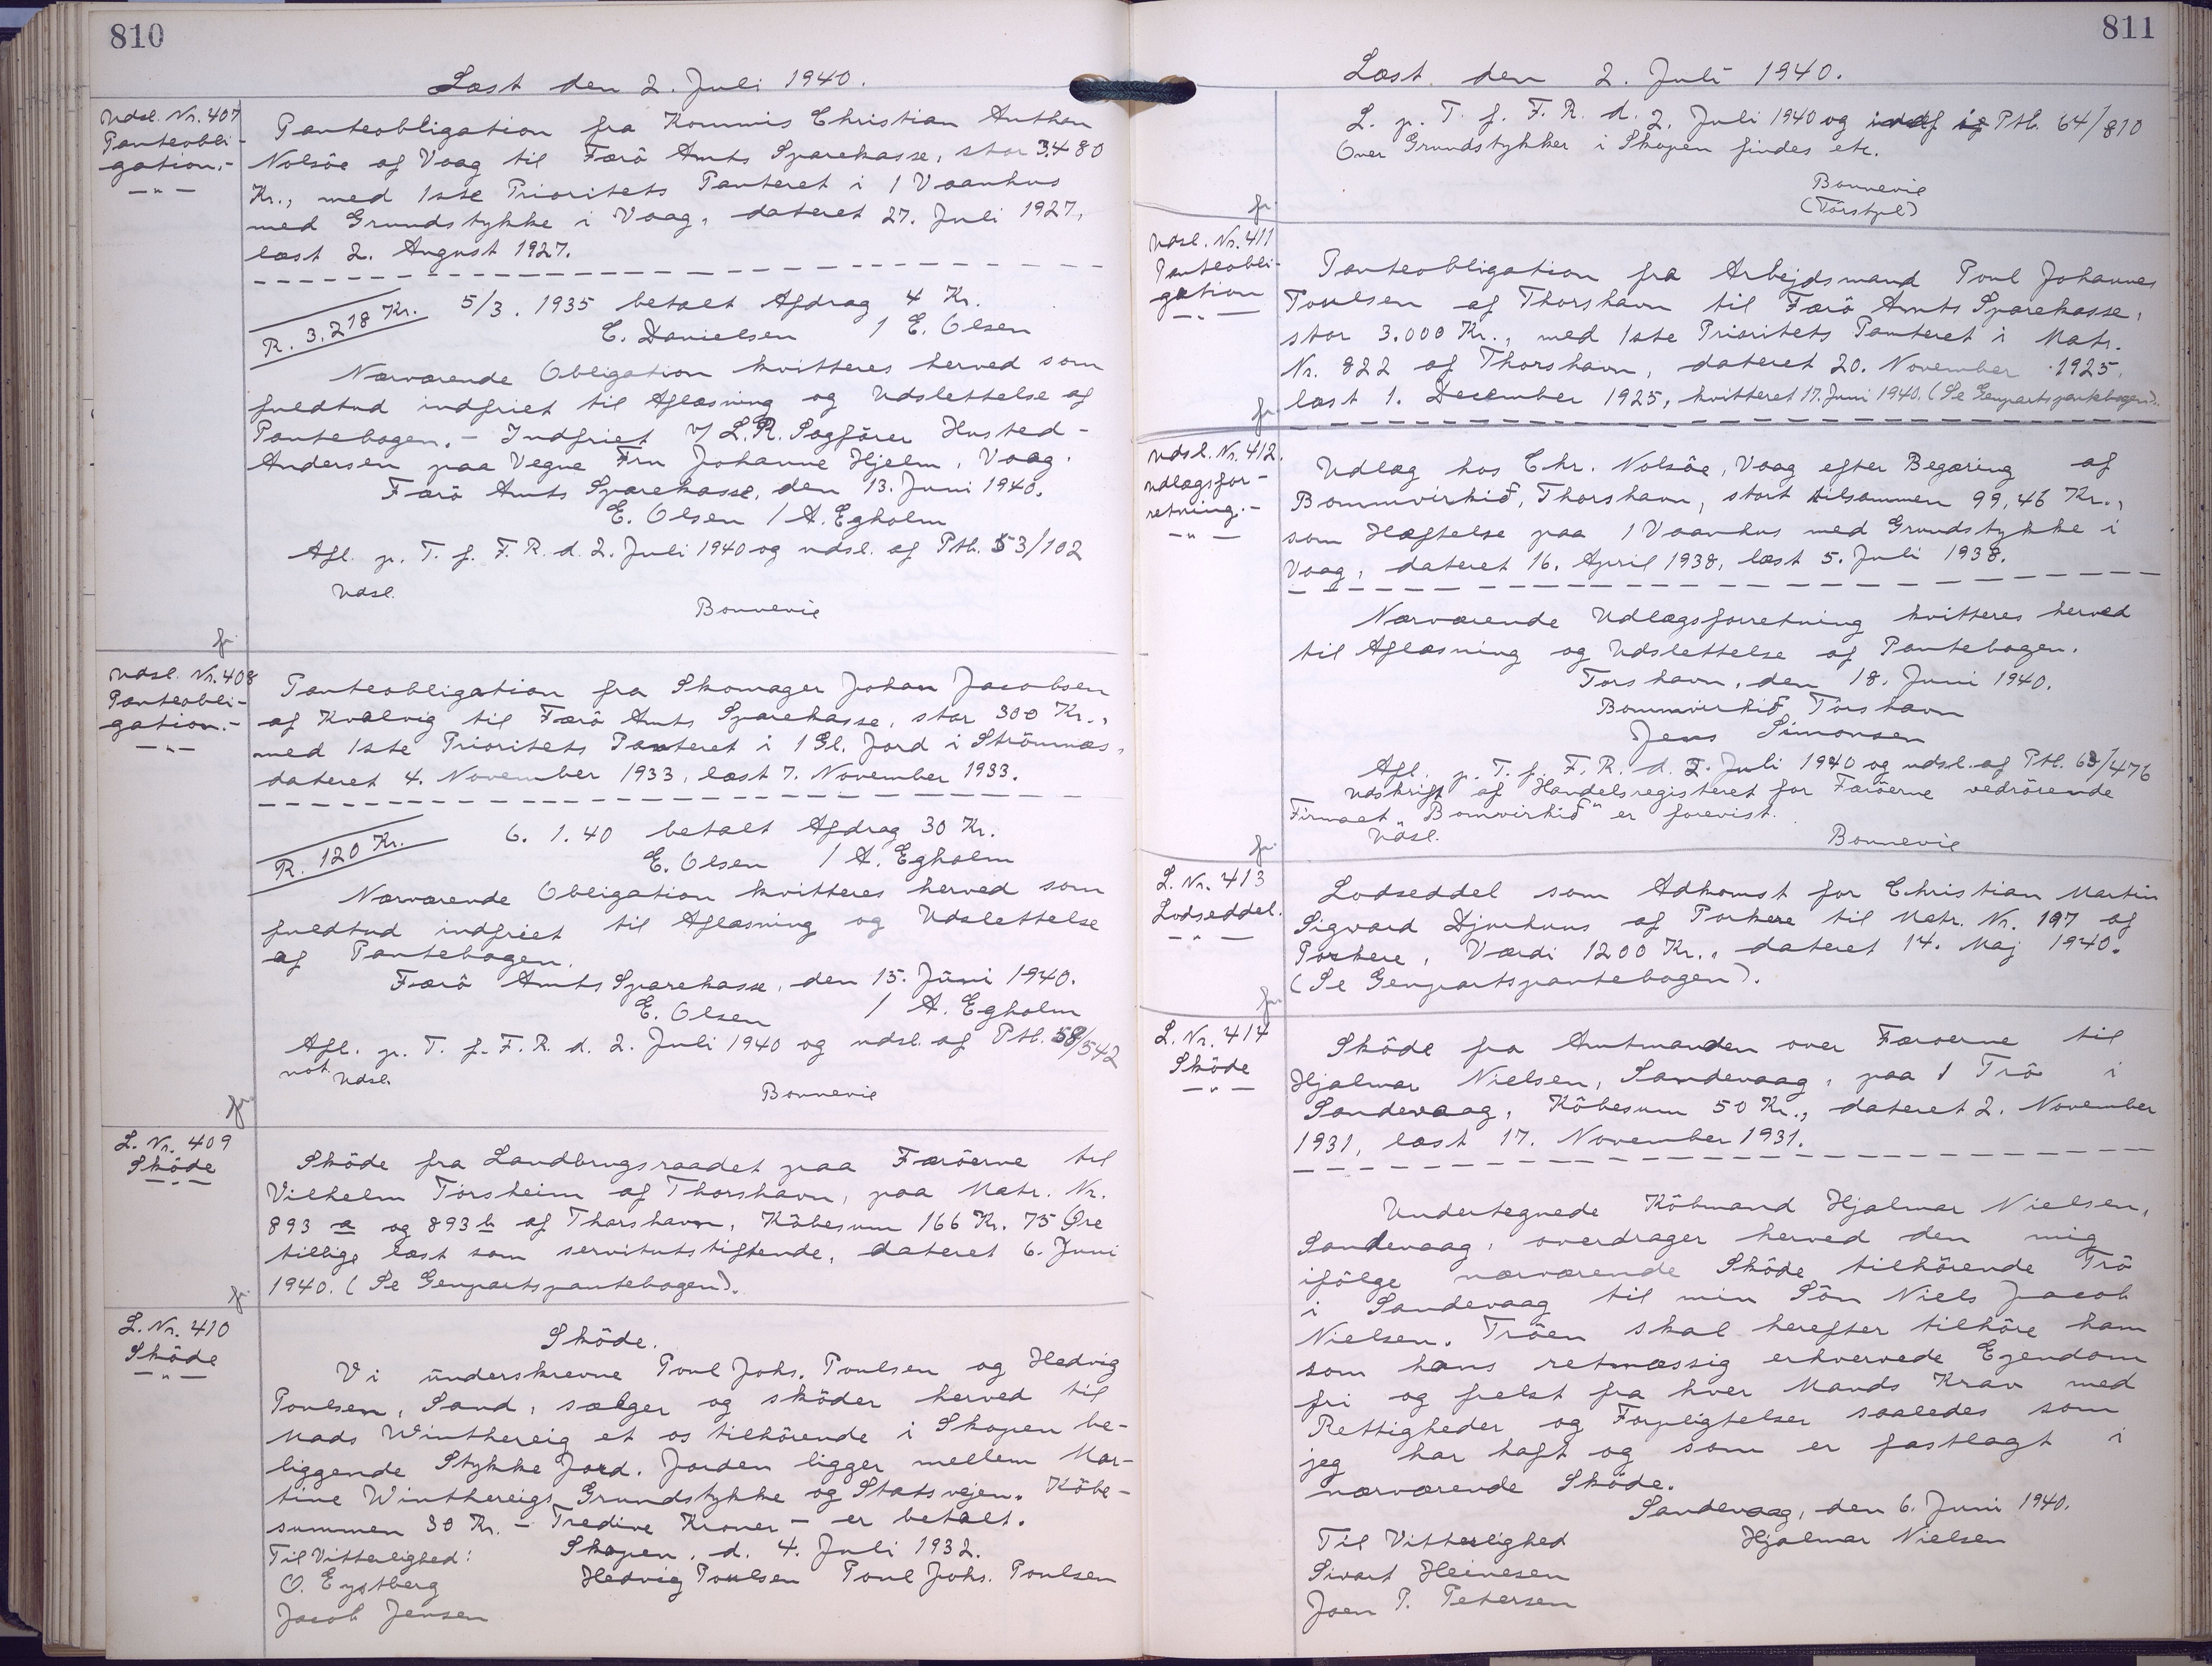 810
Læst den 2. Juli 1940.
Udsl. Nr. 407
Panteobli-
gation.-
Panteobligation fra Kommis Christian Anthon
Nolsöe af Vaag til Færö Amts Sparekasse, stor 3480
Kr., med 1ste Prioritets Panteret i 1 Vaanhus
med Grundstykke i Vaag, dateret 27. Juli 1927,
læst 2. August 1927.
R. 3.218 Kr.
5/3. 1935 betalt Afdrag 4 Kr.
C. Danielsen / E. Olsen
Nærværende Obligation kvitteres herved som
fuldtud indfriet til Aflæsning og Udslettelse af
Pantebogen. - Indfriet v/ L.R. Sagförer Husted-
Andersen paa Vegne Fru Johanne Hjelm, Vaag.
Færö Amts Sparekasse, den 13. Juni 1940.
E. Olsen / A. Egholm
Afl. p. T. f. F. R. d. 2. Juli 1940 og udsl. af Ptb. 53/102
Udsl.
Bonnevie
fr.
Udsl. Nr. 408
Panteobli-
gation.-
Panteobligation fra Skomager Johan Jacobsen
af Kvalvig til Færö Amts Sparekasse, stor 300 Kr.,
med 1ste Prioritets Panteret i 1 Gl. Jord i Strömnæs,
dateret 4. November 1933, læst 7. November 1933.
R. 120 Kr.
6. 1. 40 betalt Afdrag 30 Kr.
E. Olsen / A. Egholm
Nærværende Obligation kvitteres herved som
fuldtud indfriet til Aflæsning og Udslettelse
af Pantebogen.
Færö Amts Sparekasse, den 15. Juni 1940.
E. Olsen / A. Egholm
Afl. p. T. f. F. R. d. 2. Juli 1940 og udsl. af Ptb. 58/542
not. Udsl.
Bonnevie
fr.
L. Nr. 409
Sköde
Sköde fra Landbrugsraadet paa Færöerne til
Vilhelm Torsheim af Thorshavn, paa Matr. Nr.
893 a og 893 b af Thorshavn, Köbesum 166 Kr. 75 Øre
tillige læst som servitutstiftende, dateret 6. Juni
1940. (Se Genpartspantebogen).
fr.
L. Nr. 410
Sköde
Sköde.
Vi underskrevne Poul Johs. Poulsen og Hedvig
Poulsen, Sand, sælger og sköder herved til
Mads Winthereig et os tilhörende i Skopen be-
liggende Stykke Jord. Jorden ligger mellem Mar-
tine Winthereigs Grundstykke og Statsvejen. Köbe-
summen 30 Kr. - Tredive Kroner - er betalt.
Til Vitterlighed: Skopen, d. 4. Juli 1932.
O. Eystberg Hedvig Poulsen Poul Johs. Poulsen
Jacob Jensen
811
Læst den 2. Juli 1940.
L. p. T. f. F. R. d. 2. Juli 1940 og Ptb. 64/810
Over Grundstykker i Skopen findes etc.
Bonnevie
fr.
Udsl. Nr. 411
Panteobli-
gation
Panteobligation fra Arbejdsmand Poul Johannes
Poulsen af Thorshavn til Færö Amts Sparekasse,
stor 3.000 Kr., med 1ste Prioritets Panteret i Matr.
Nr. 822 af Thorshavn, dateret 20. November 1925,
læst 1. December 1925, kvitteret 17. Juni 1940. (Se Genpartspantebogen).
fr.
Udsl. Nr. 412.
Udlægsfor-
retning.-
Udlæg hos Chr. Nolsöe, Vaag efter Begæring af
Bommvirkið, Thorshavn, stort tilsammen 99,46 Kr.,
som Hæftelse paa 1 Vaanhus med Grundstykke i
Vaag, dateret 16. April 1938, læst 5. Juli 1938.
Nærværende Udlægsforretning kvitteres herved
til Aflæsning og Udslettelse af Pantebogen.
Torshavn, den 18. Juni 1940.
Bommvirkið Tórshavn
Jens Simonsen
Afl. p. T. f. F. R. d. 2. Juli 1940 og udsl. af Ptb. 63/476
Udskrift af Handelsregisteret for Færöerne vedrörende
Firmaet "Bommvirkið" er forevist.
Udsl.
Bonnevie
fr.
L. Nr. 413
Lodseddel.
Lodseddel som Adkomst for Christian Martin
Sigvard Djurhuus af Porkere til Matr. Nr. 197 af
Porkere, Værdi 1200 Kr., dateret 14. Maj 1940.
(Se Genpartspantebogen).
fr.
L. Nr. 414
Sköde
Sköde fra Amtmanden over Færoerne til
Hjalmar Nielsen, Sandevaag, paa 1 Trö i
Sandevaag, Köbesum 50 Kr., dateret 2. November
1931, læst 17. November 1931.
Undertegnede Köbmand Hjalmar Nielsen,
Sandevaag, overdrager herved den mig
ifölge nærværende Sköde tilhörende Trö
i Sandevaag til min Sön Niels Jacob
Nielsen. Tröen skal herefter tilhöre ham
som hans retmæssig erhvervede Ejendom
fri og frelst fra hver Mands Krav med
Rettigheder og Forpligtelser saaledes som
jeg har haft og som er fastlagt i
nærværende Sköde.
Sandevaag, den 6. Juni 1940.
Til Vitterlighed Hjalmar Nielsen
Sivart Heinesen
Joen P. Petersen